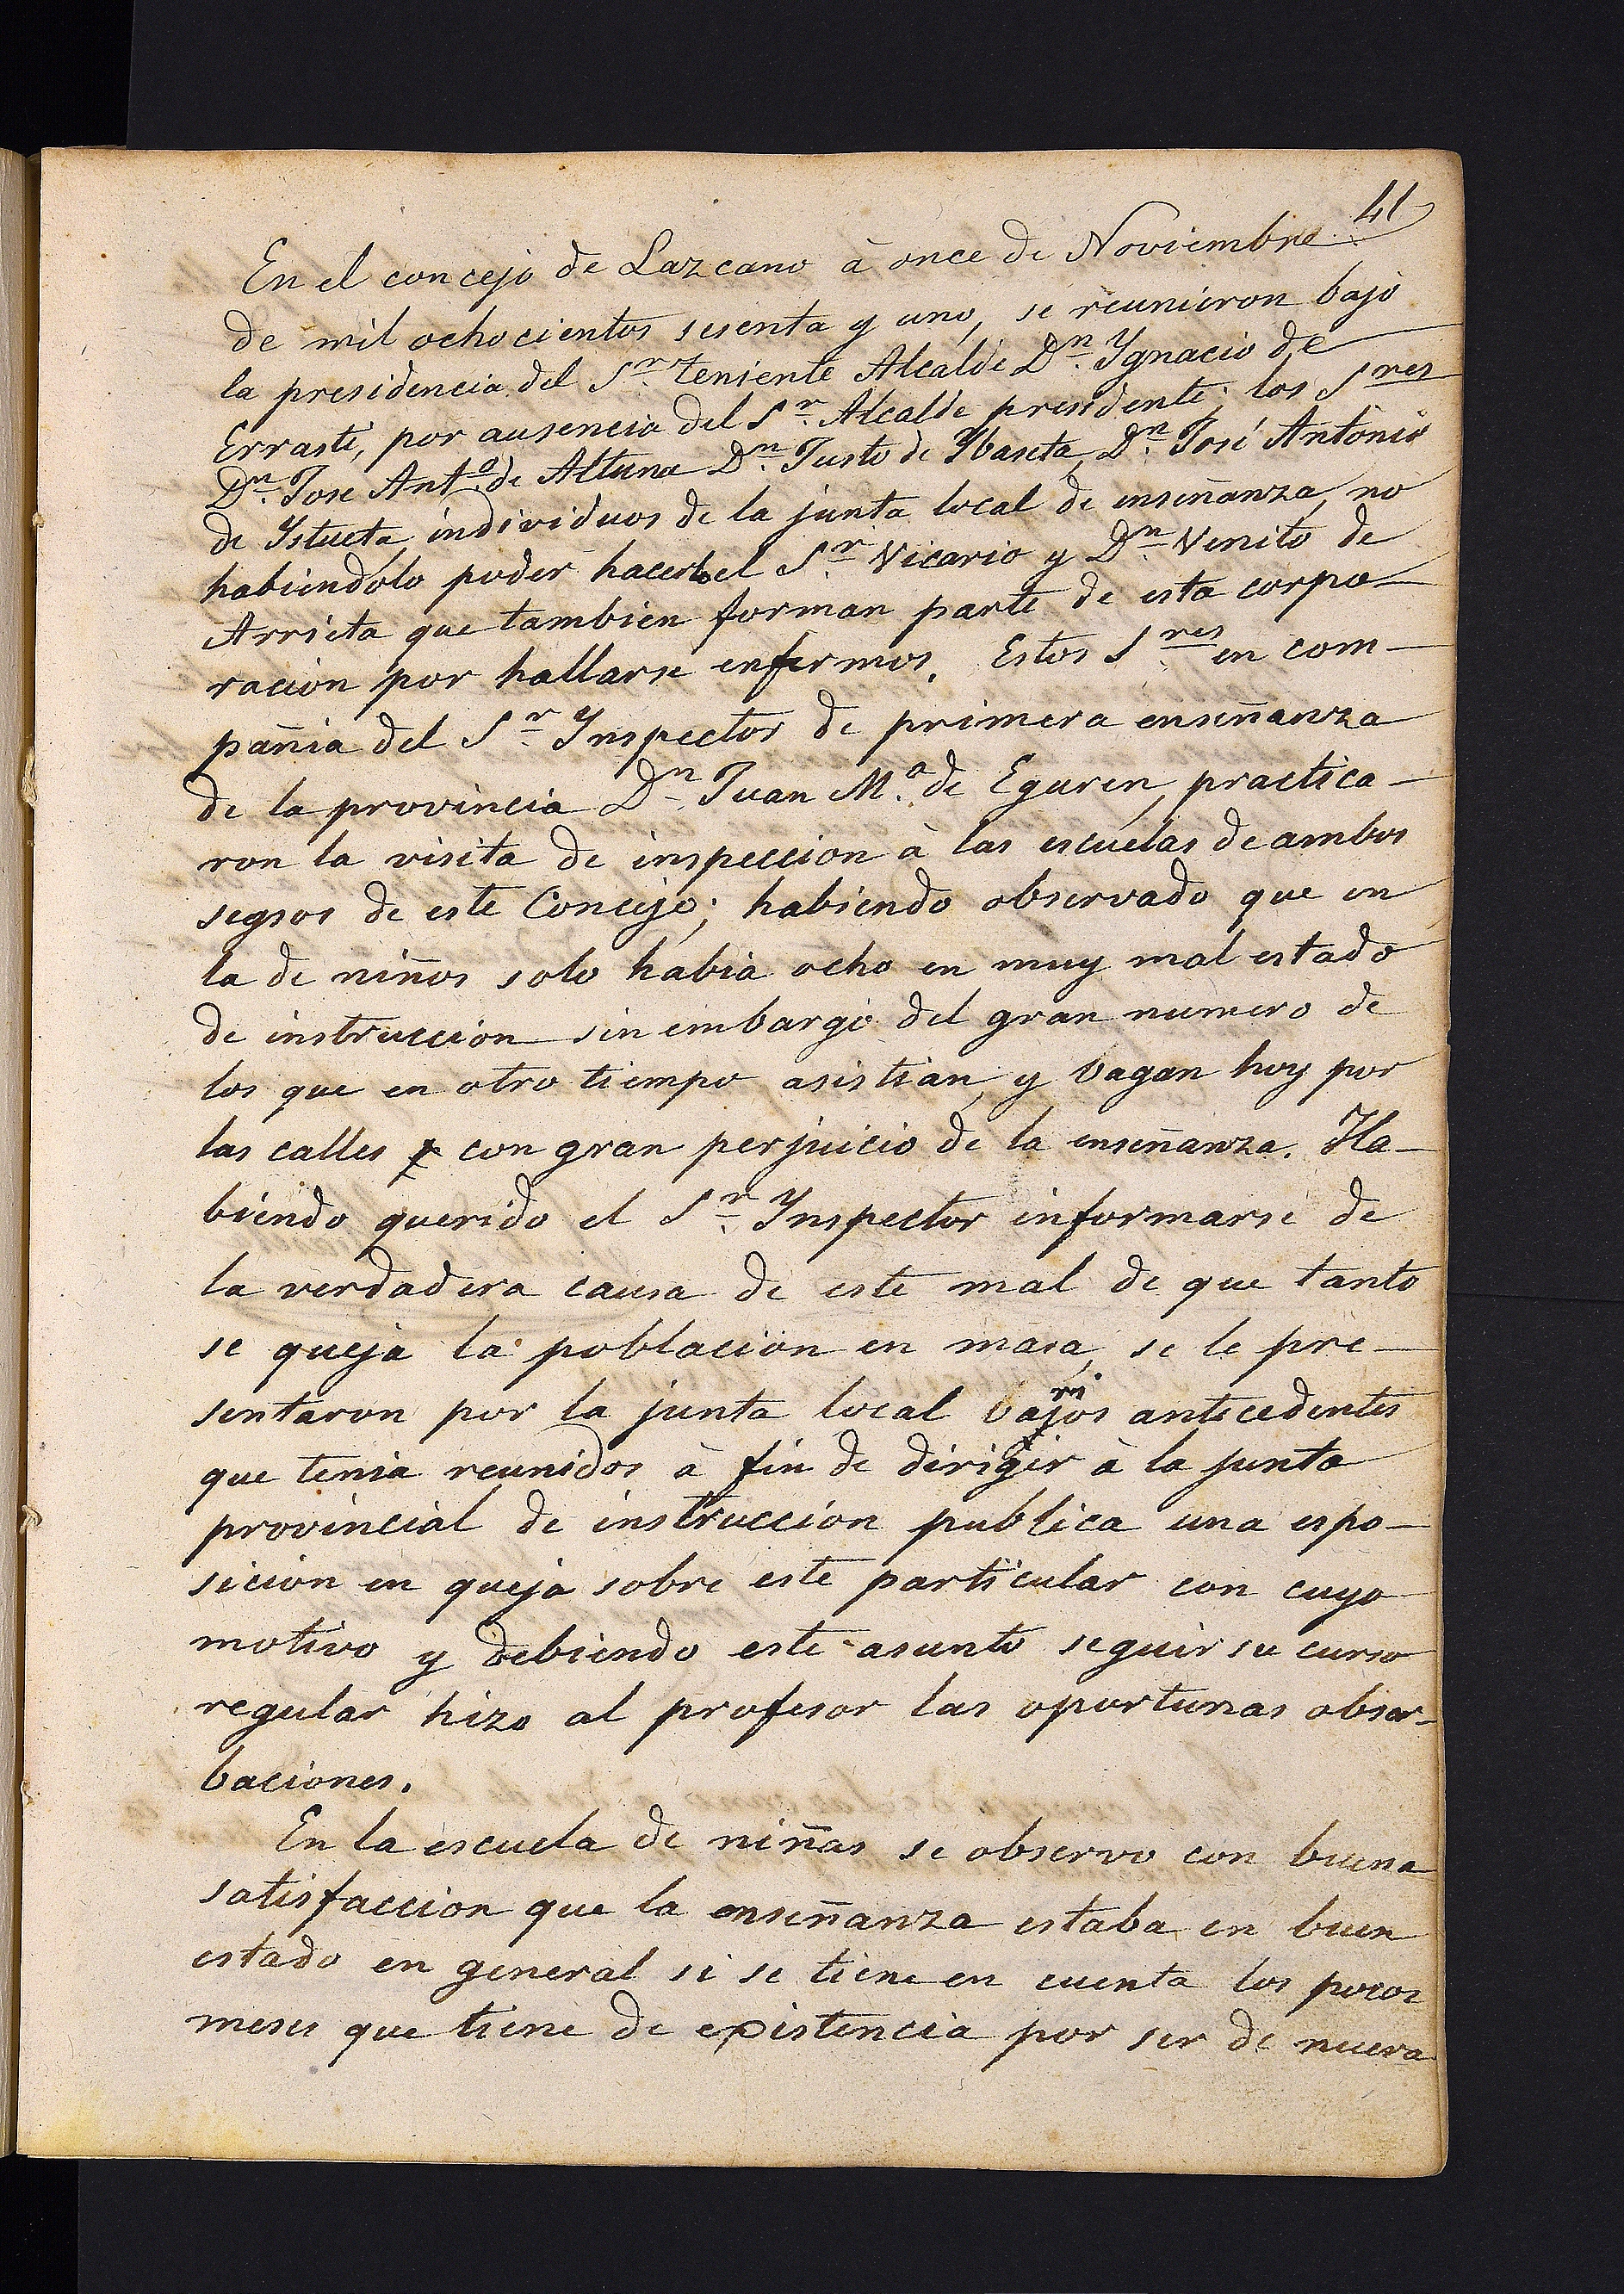 41
En el concejo de Lazcano à once de Noviembre
de mil ochocientos sesenta y uno, se reunieron bajo
la presidencia del Sr. teniente Alcalde Dn. Ygnacio de
Erraste, por ausencia del Sr. Alcalde presidente; los Sres
Dn. Jose Anto. de Altuna Dn. Justo de Ybaseta, Dn. José Antonio
de Istueta, individuos de la junta local de enseñanza, no
habiendolo poder hacerlo el Sr. Vicario y Dn. Venito de
Arrieta que tambien forman parte de esta corpo-
racion por hallarse enfermos. Estos Sres. en com-
pañia del Sr. Ynspector de primera enseñanza
de la provincia Dn. Juan Ma. de Eguren, practica-
ron la visita de inspeccion à las escuelas de ambos
segsos de este Concejo; habiendo observado que en
la de niños solo habia ocho en muy mal estado
de instruccion sin embargo del gran numero de
los que en otro tiempo asistian, y bagan hoy por
las calles con gran perjuicio de la enseñanza. Ha-
biendo querido el Sr. Ynspector informarse de
la verdadera causa de este mal de que tanto
se queja la poblacion en masa, se le pre-
sentaron por la junta local barios antecedentes
que tenia reunidos à fin de dirigir à la junta
provincial de instruccion publica una espo-
sicion en queja sobre este particular con cuyo
motivo y debiendo este asunto seguir su curso
regular hizo al profesor las oportunas obser-
baciones.
En la escuela de niñas se observo con buena
satisfaccion que la enseñanza estaba en buen
estado en general si se tiene en cuenta los pocos
meses que tiene de existencia por ser de nueva